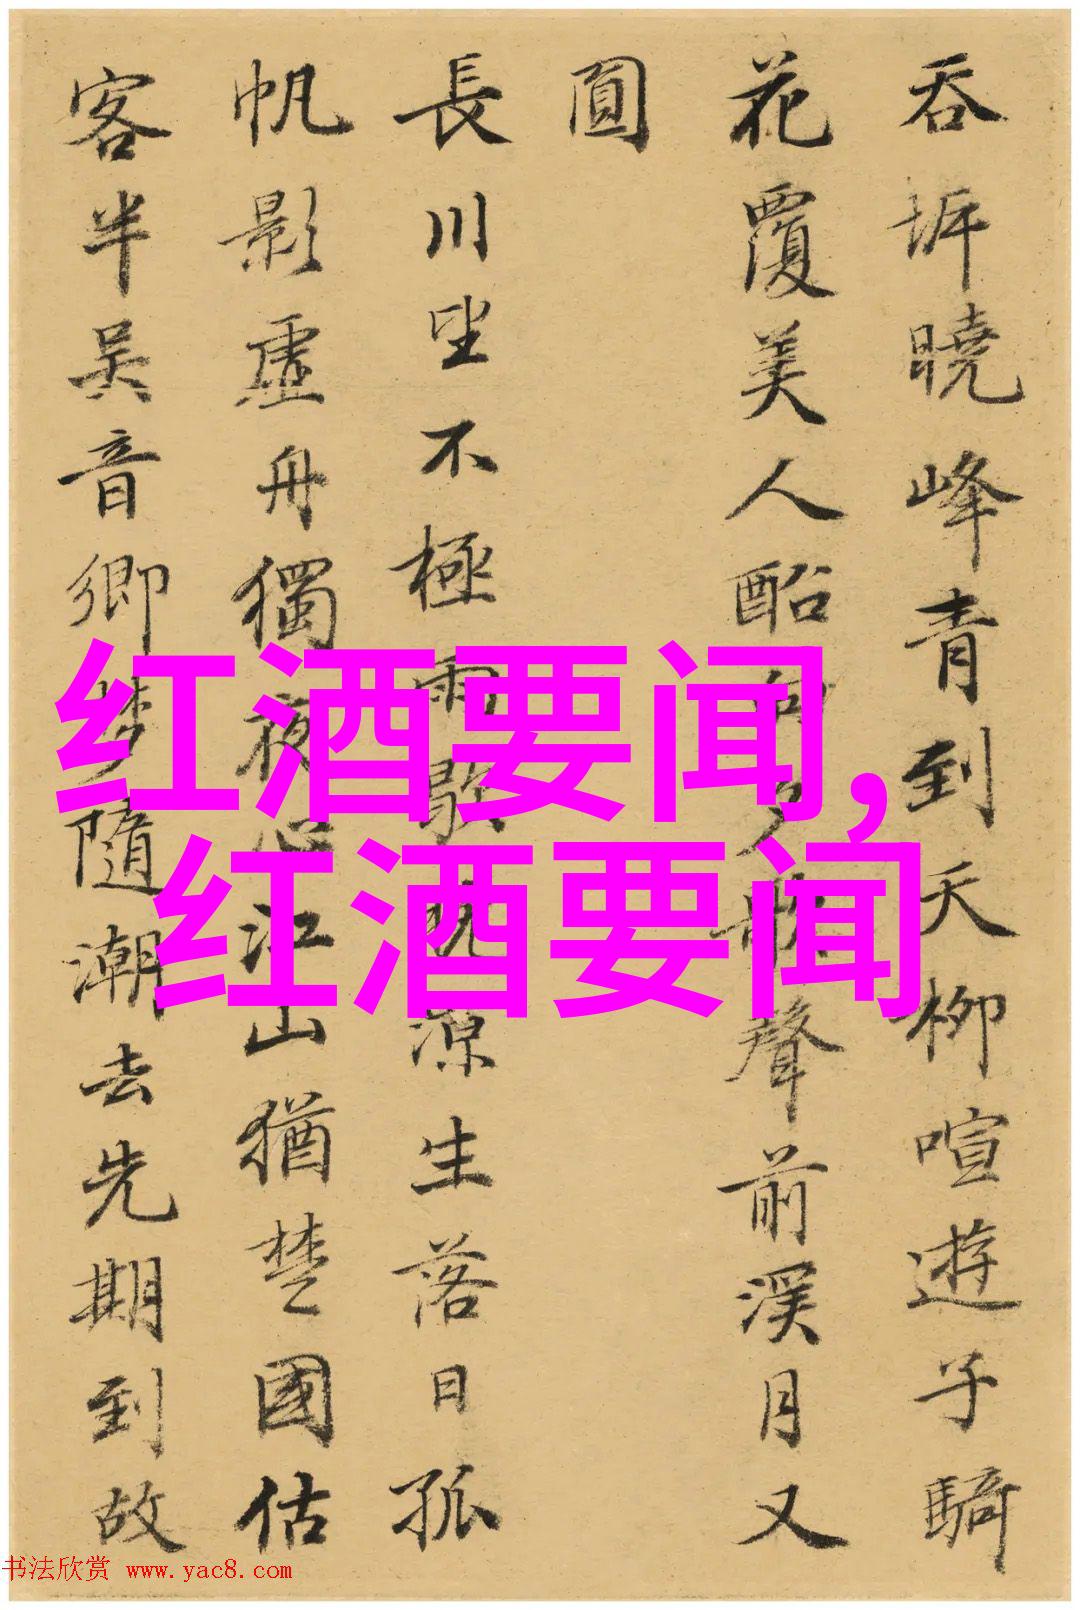 吞坼曉峰青到天柳喧遊子騎
花覆美人船向夕歌聲前溪月又
圓
長川坐不極雨歇晚涼生落日孤
帆影虛舟獨夜心江山猶楚國估
客半吳音鄉夢隨潮去先期到故
红酒要闻,
红酒要闻
书法欣赏 www.yac8.com